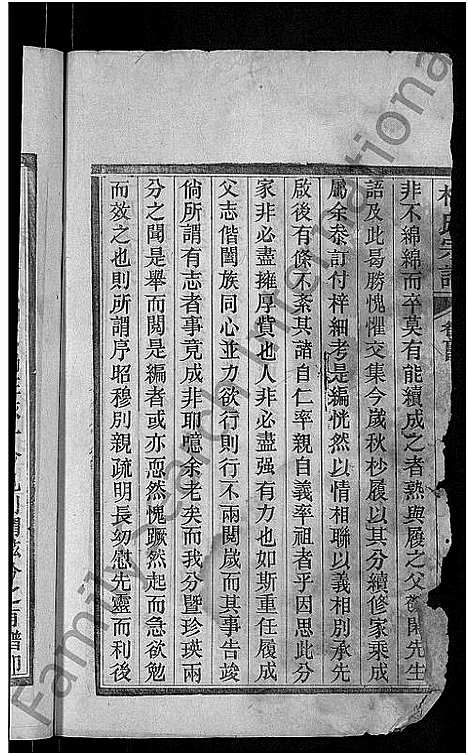 氏宗譜
非不綿綿而卒莫有能續成之者熟與履之父閒先生
語及此曷勝愧懼交集今歲秋杪履以其分續修家乘成
屬余叅訂付梓細考是編恍然以情相聯以義相別承先
啟後有條不紊其諸自仁率親自義率祖者乎因思此分
家非必盡擁厚貲也人非必盡强有力也如斯重任履成
父志偕闔族同心並力欲行則行不兩閱歲而其事告竣
倘所謂有志者事竟成非耶噫余老矣而我分暨珍瑛兩
分之聞是舉而閱是編者或亦恧然愧蹶然起而急欲勉
而效之也則所謂序昭穆別親疏明長幼慰先靈而利後